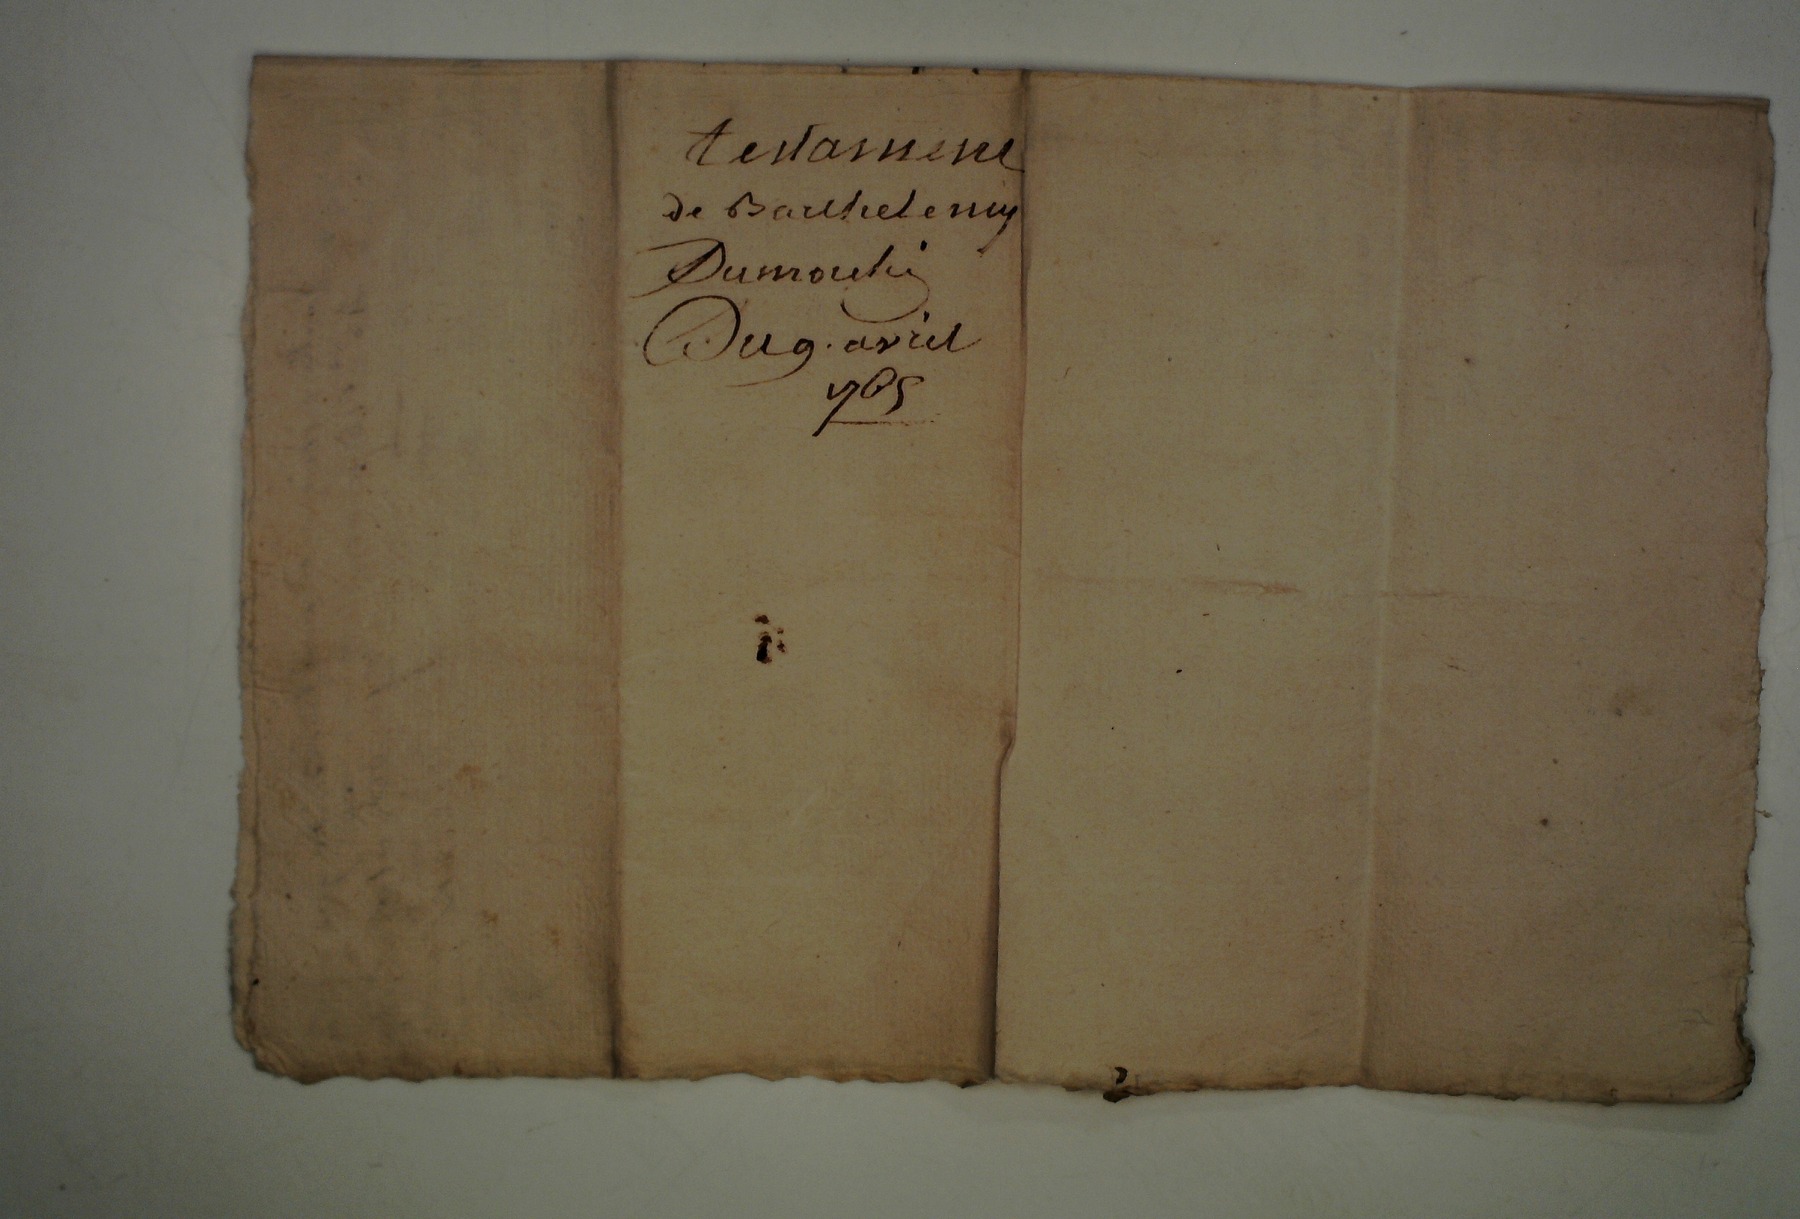 testament
de Barthelemy
Dumoulin
Du 9. avril
1765